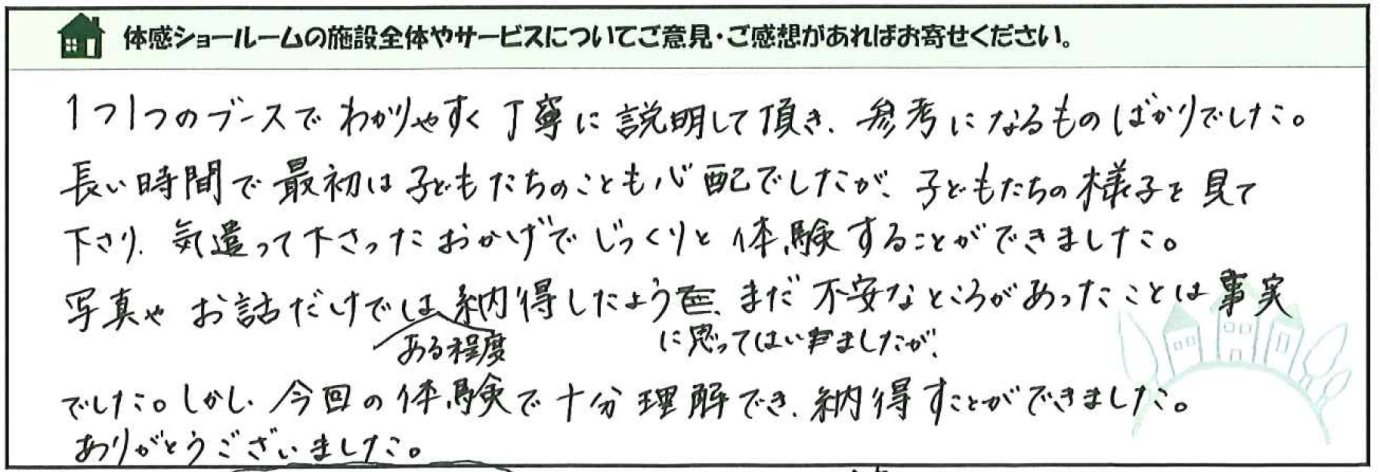 体感ショールームの施設全体やサービスについてご意見・ご感想があればお寄せください。
1つ1つのブースでわかりやすく丁寧に説明して頂き、参考になるものばかりでした。
長い時間で最初は子どもたちのことも心配でしたが、子どもたちの様子を見て
下さり、気遣って下さったおかげでじっくりと体験することができました。
写真やお話だけでは納得したよう、まだ不安なところがあったことは事実
ある程度 に思ってはいましたが、
でした。しかし、今回の体験で十分理解でき、納得すことができました。
ありがとうございました。